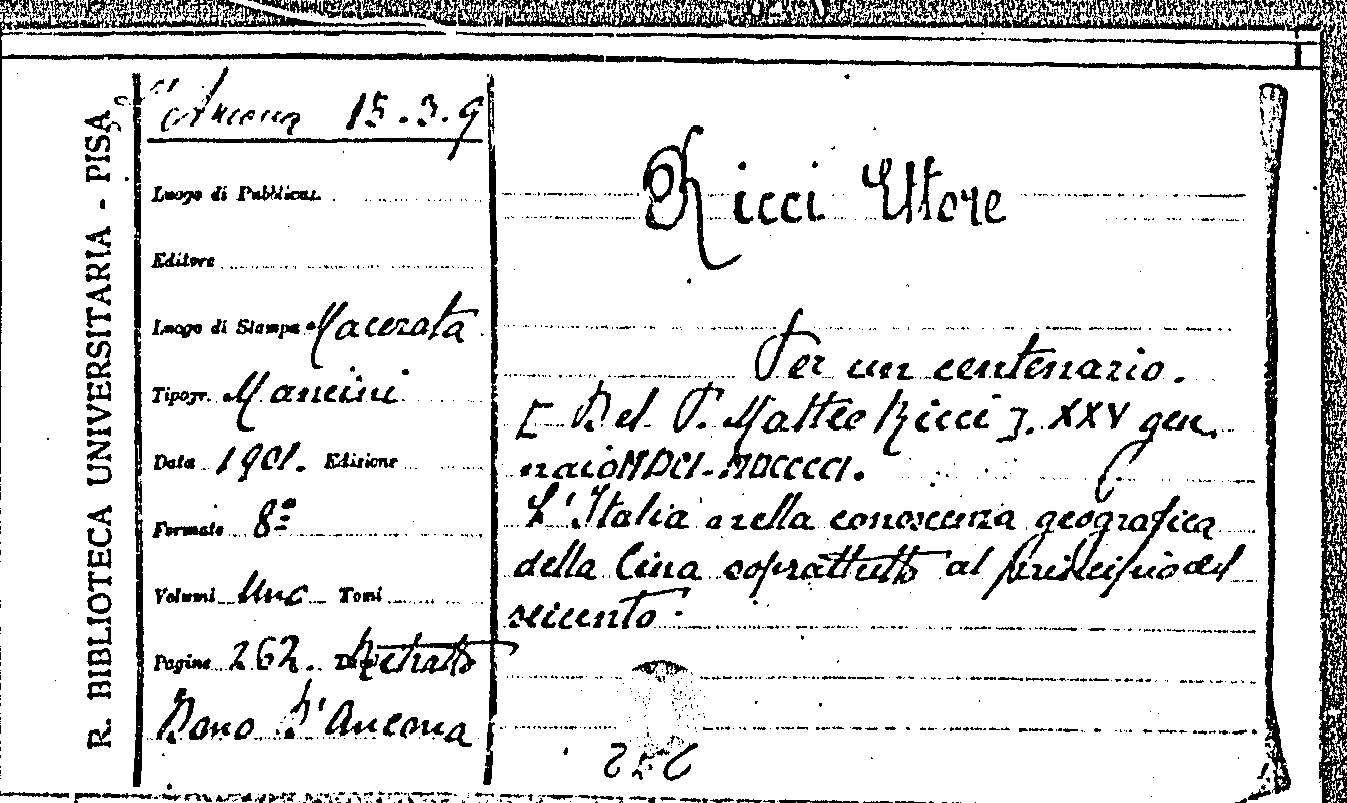 R. BIBLIOTECA UNIVERSITARIA - PISA
D'Ancona 15.3.9
Luogo di Pubblicaz.
Editore
Luogo di Stampa Macerata
Tipogr. Mancini
Data 1901. Edizione
Formato 8º
Volumi Uno Tomi
Pagine 262. Ritratto
Dono D'Ancona
Ricci Ettore
Per un centenario.
[Del P. Matteo Ricci]. XXV gen
naio MDCI-MDCCCCI.
L'Italia nella conoscenza geografica
della Cina soprattutto al principio del
seicento.